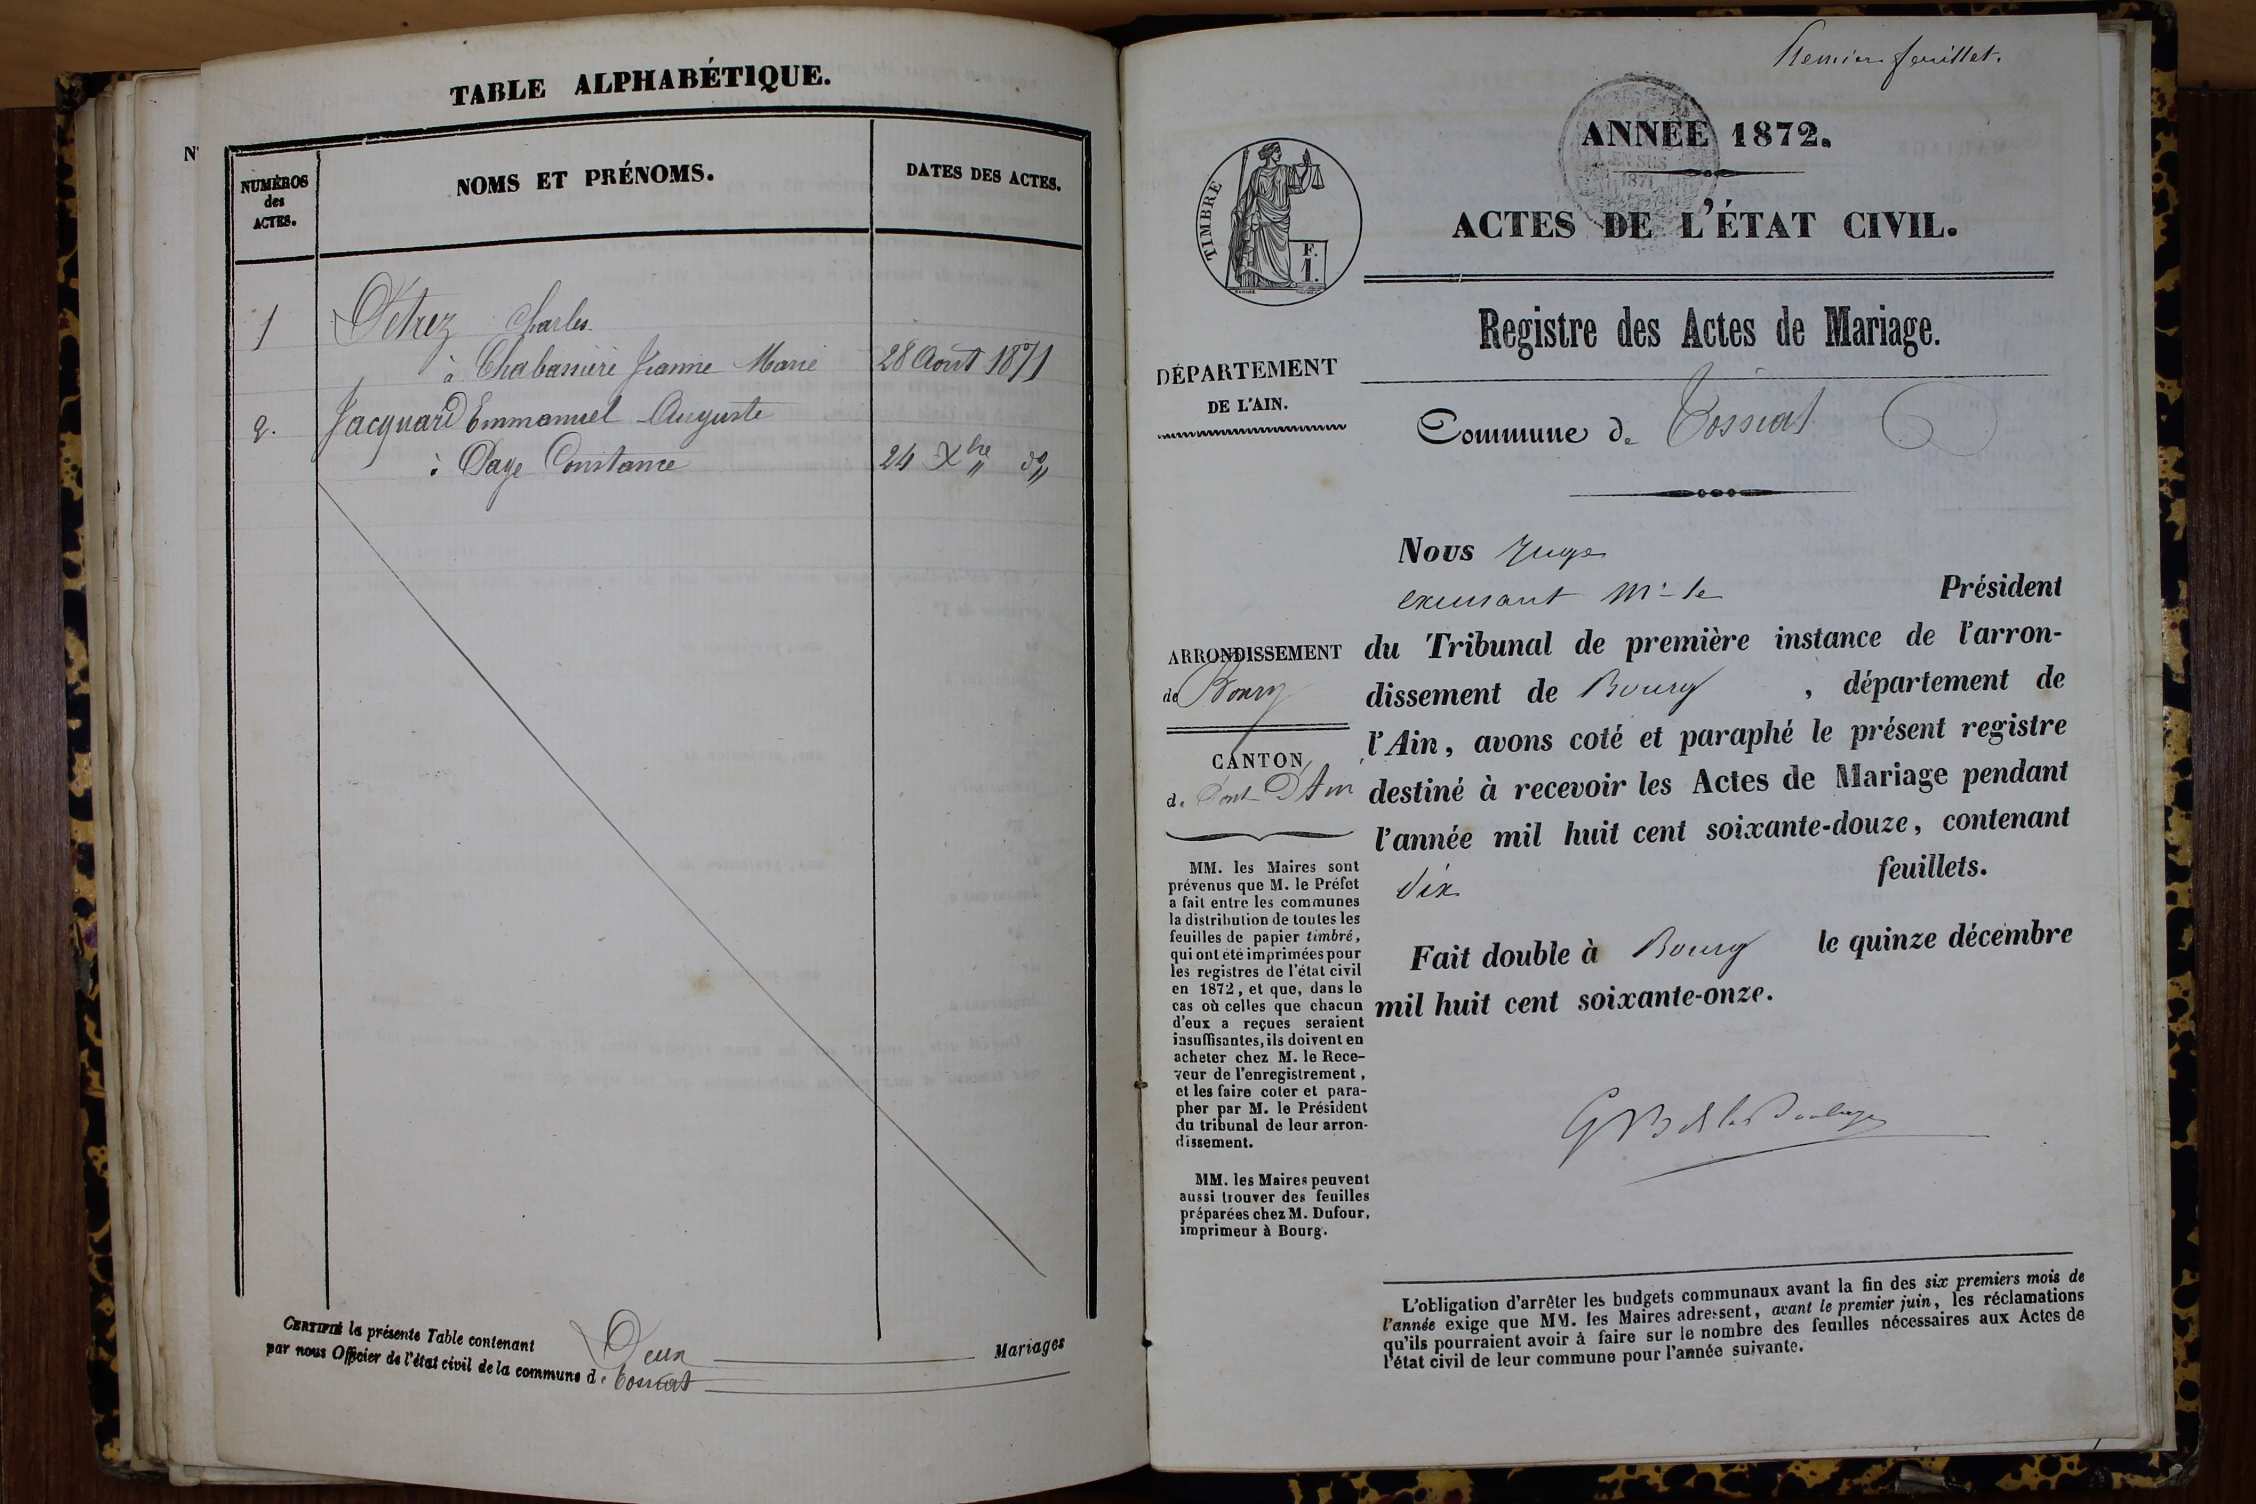 TABLE ALPHABÉTIQUE.
NUMÉROS
des
ACTES.
NOMS ET PRÉNOMS.
DATES DES ACTES.
1
Charles
à Chabassière Jeanne Marie 28 Août 1871
2. Jacquard Emmanuel Auguste
à Page Constance 24 Xbre " do "
CERTIFIÉ la présente Table contenant Deux Mariages
par nous Officier de l'état civil de la commune de Tossiat
Premier feuillet.
ANNÉE 1872.
EN SUS
1871
TIMBRE
F.
1.
ACTES DE L'ÉTAT CIVIL.
Registre des Actes de Mariage.
DÉPARTEMENT
DE L'AIN.
Commune de Tossiat
Nous Juge
Mr le Président
du Tribunal de première instance de l'arron-
dissement de Bourg, département de
l'Ain, avons coté et paraphé le présent registre
destiné à recevoir les Actes de Mariage pendant
l'année mil huit cent soixante-douze, contenant
dix feuillets.
Fait double à Bourg le quinze décembre
mil huit cent soixante-onze.
ARRONDISSEMENT
de Bourg
CANTON
de Pont D'Ain
MM. les Maires sont
prévenus que M. le Préfet
a fait entre les communes
la distribution de toutes les
feuilles de papier timbré,
qui ont été imprimées pour
les registres de l'état civil
en 1872, et que, dans le
cas où celles que chacun
d'eux a reçues seraient
insuffisantes, ils doivent en
acheter chez M. le Rece-
veur de l'enregistrement,
et les faire coter et para-
pher par M. le Président
du tribunal de leur arron-
dissement.
MM. les Maires peuvent
aussi trouver des feuilles
préparées chez M. Dufour,
imprimeur à Bourg.
L'obligation d'arrêter les budgets communaux avant la fin des six premiers mois de
l'année exige que MM. les Maires adressent, avant le premier juin, les réclamations
qu'ils pourraient avoir à faire sur le nombre des feuilles nécessaires aux Actes de
l'état civil de leur commune pour l'année suivante.